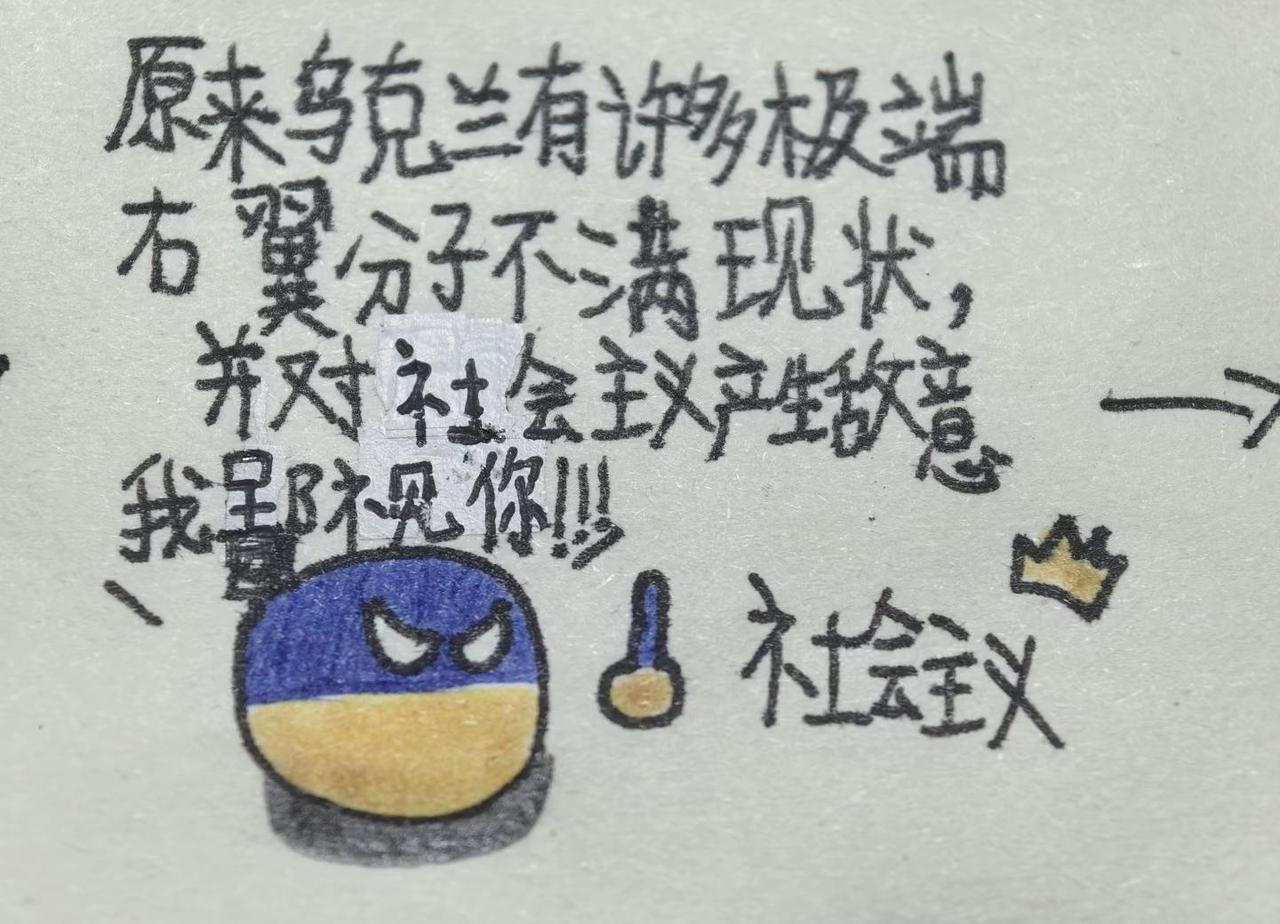 原来乌克兰有许多极端
右翼分子不满现状,
并对社会主义产生敌意
我鄙视你!!!
社会主义